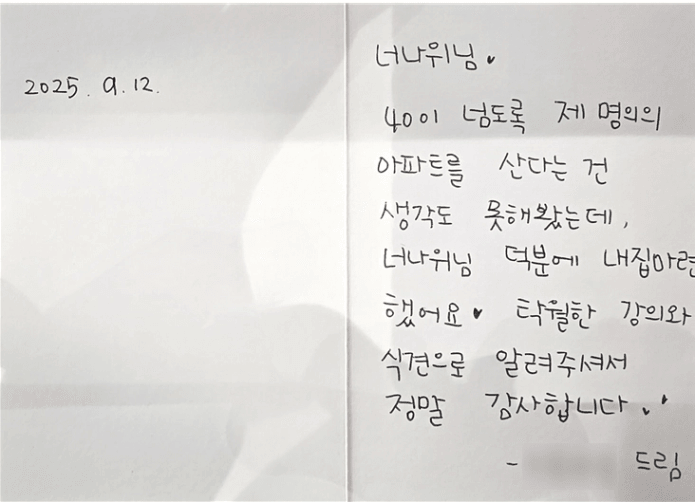 2025. 9. 12.
너나위님♥
40이 넘도록 제 명의의
아파트를 산다는 건
생각도 못해봤는데,
너나위님 덕분에 내집마련
했어요♥ 탁월한 강의와
식견으로 알려주셔서
정말 감사합니다.
- 드림